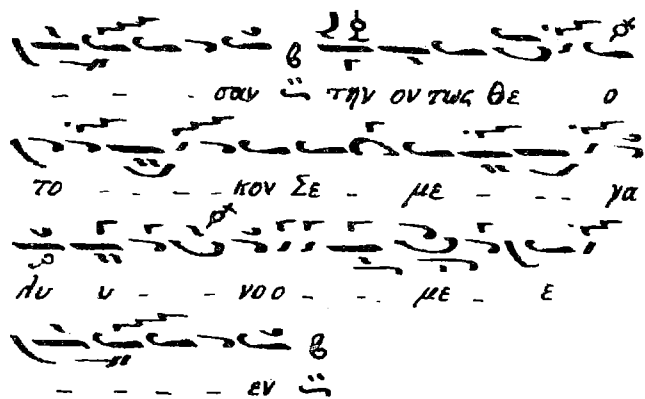 - - - σαν την οντως Θε ο
το - - - - κον Σε - με - - - γα
λυ υ - - νοο - - - με - ε
- - - - εν